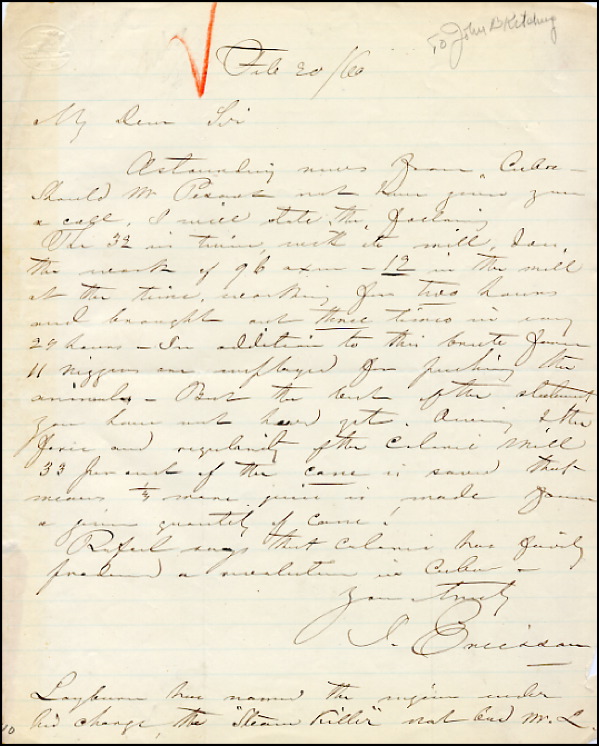 To John B Kitching
Feb 20/66
My Dear Sir
Astounding news from Cuba –
Should Mr not have given you
a call, I will state the following
The 32 in engine, with its mill, does
the work of 96 oxen – 12 in the mill
at the time, working for two hours
and brought out three times in every
24 hours – In addition to this brute force
11 niggers are employed for pushing the
animals – But the best of the statement
you have not heard yet. Owing to the
force and regularity of the caloric mill
33 per cent of the cane is saved that
means 1/3 more juice is made from
a given quantity of cane!
says that caloric has fairly
produced a revolution in Cuba –
Your truly
J. Ericsson
has named the engine under
his charge, the "Steam Killer" not bad Mr. L.